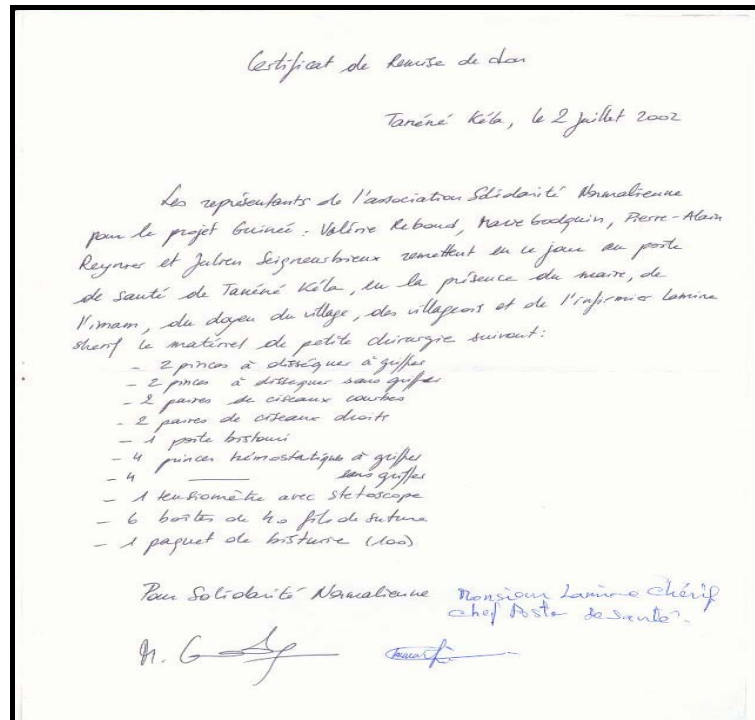 Certificat de Remise de don
Tanéné Kéla, le 2 juillet 2002
Les représentants de l'association Solidarité Normalienne
pour le projet Guinée : Valérie Reboud, Marie Godquin, Pierre-Alain
Reynier et Julien Seigneurbieux remettent en ce jour au poste
de santé de Tanéné Kéla, en la présence du maire, de
l'imam, du doyen du village, des villageois et de l'infirmier Lamine
sherif le matériel de petite chirurgie suivant :
- 2 pinces à disséquer à griffes
- 2 pinces à disséquer sans griffes
- 2 paires de ciseaux courbes
- 2 paires de ciseaux droits
- 1 porte bistouri
- 4 pinces hémostatiques à griffes
- 4 —— sans griffes
- 1 tensiomètre avec stetoscope
- 6 boîtes de 40 fils de suture
- 1 paquet de bisturie (100)
Pour Solidarité Normalienne
Monsieur Lamine Chérif
chef Poste de santé.
M. G